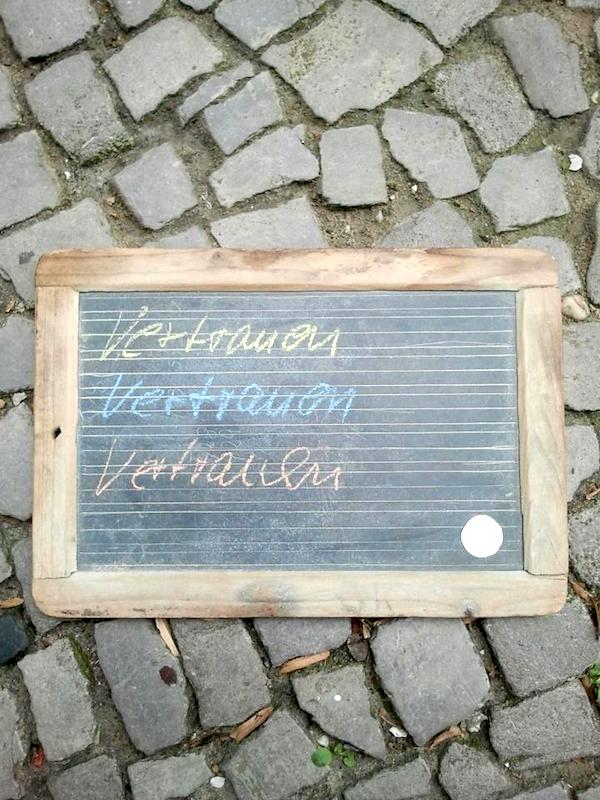 Vertrauen
Vertrauen
Vertrauen